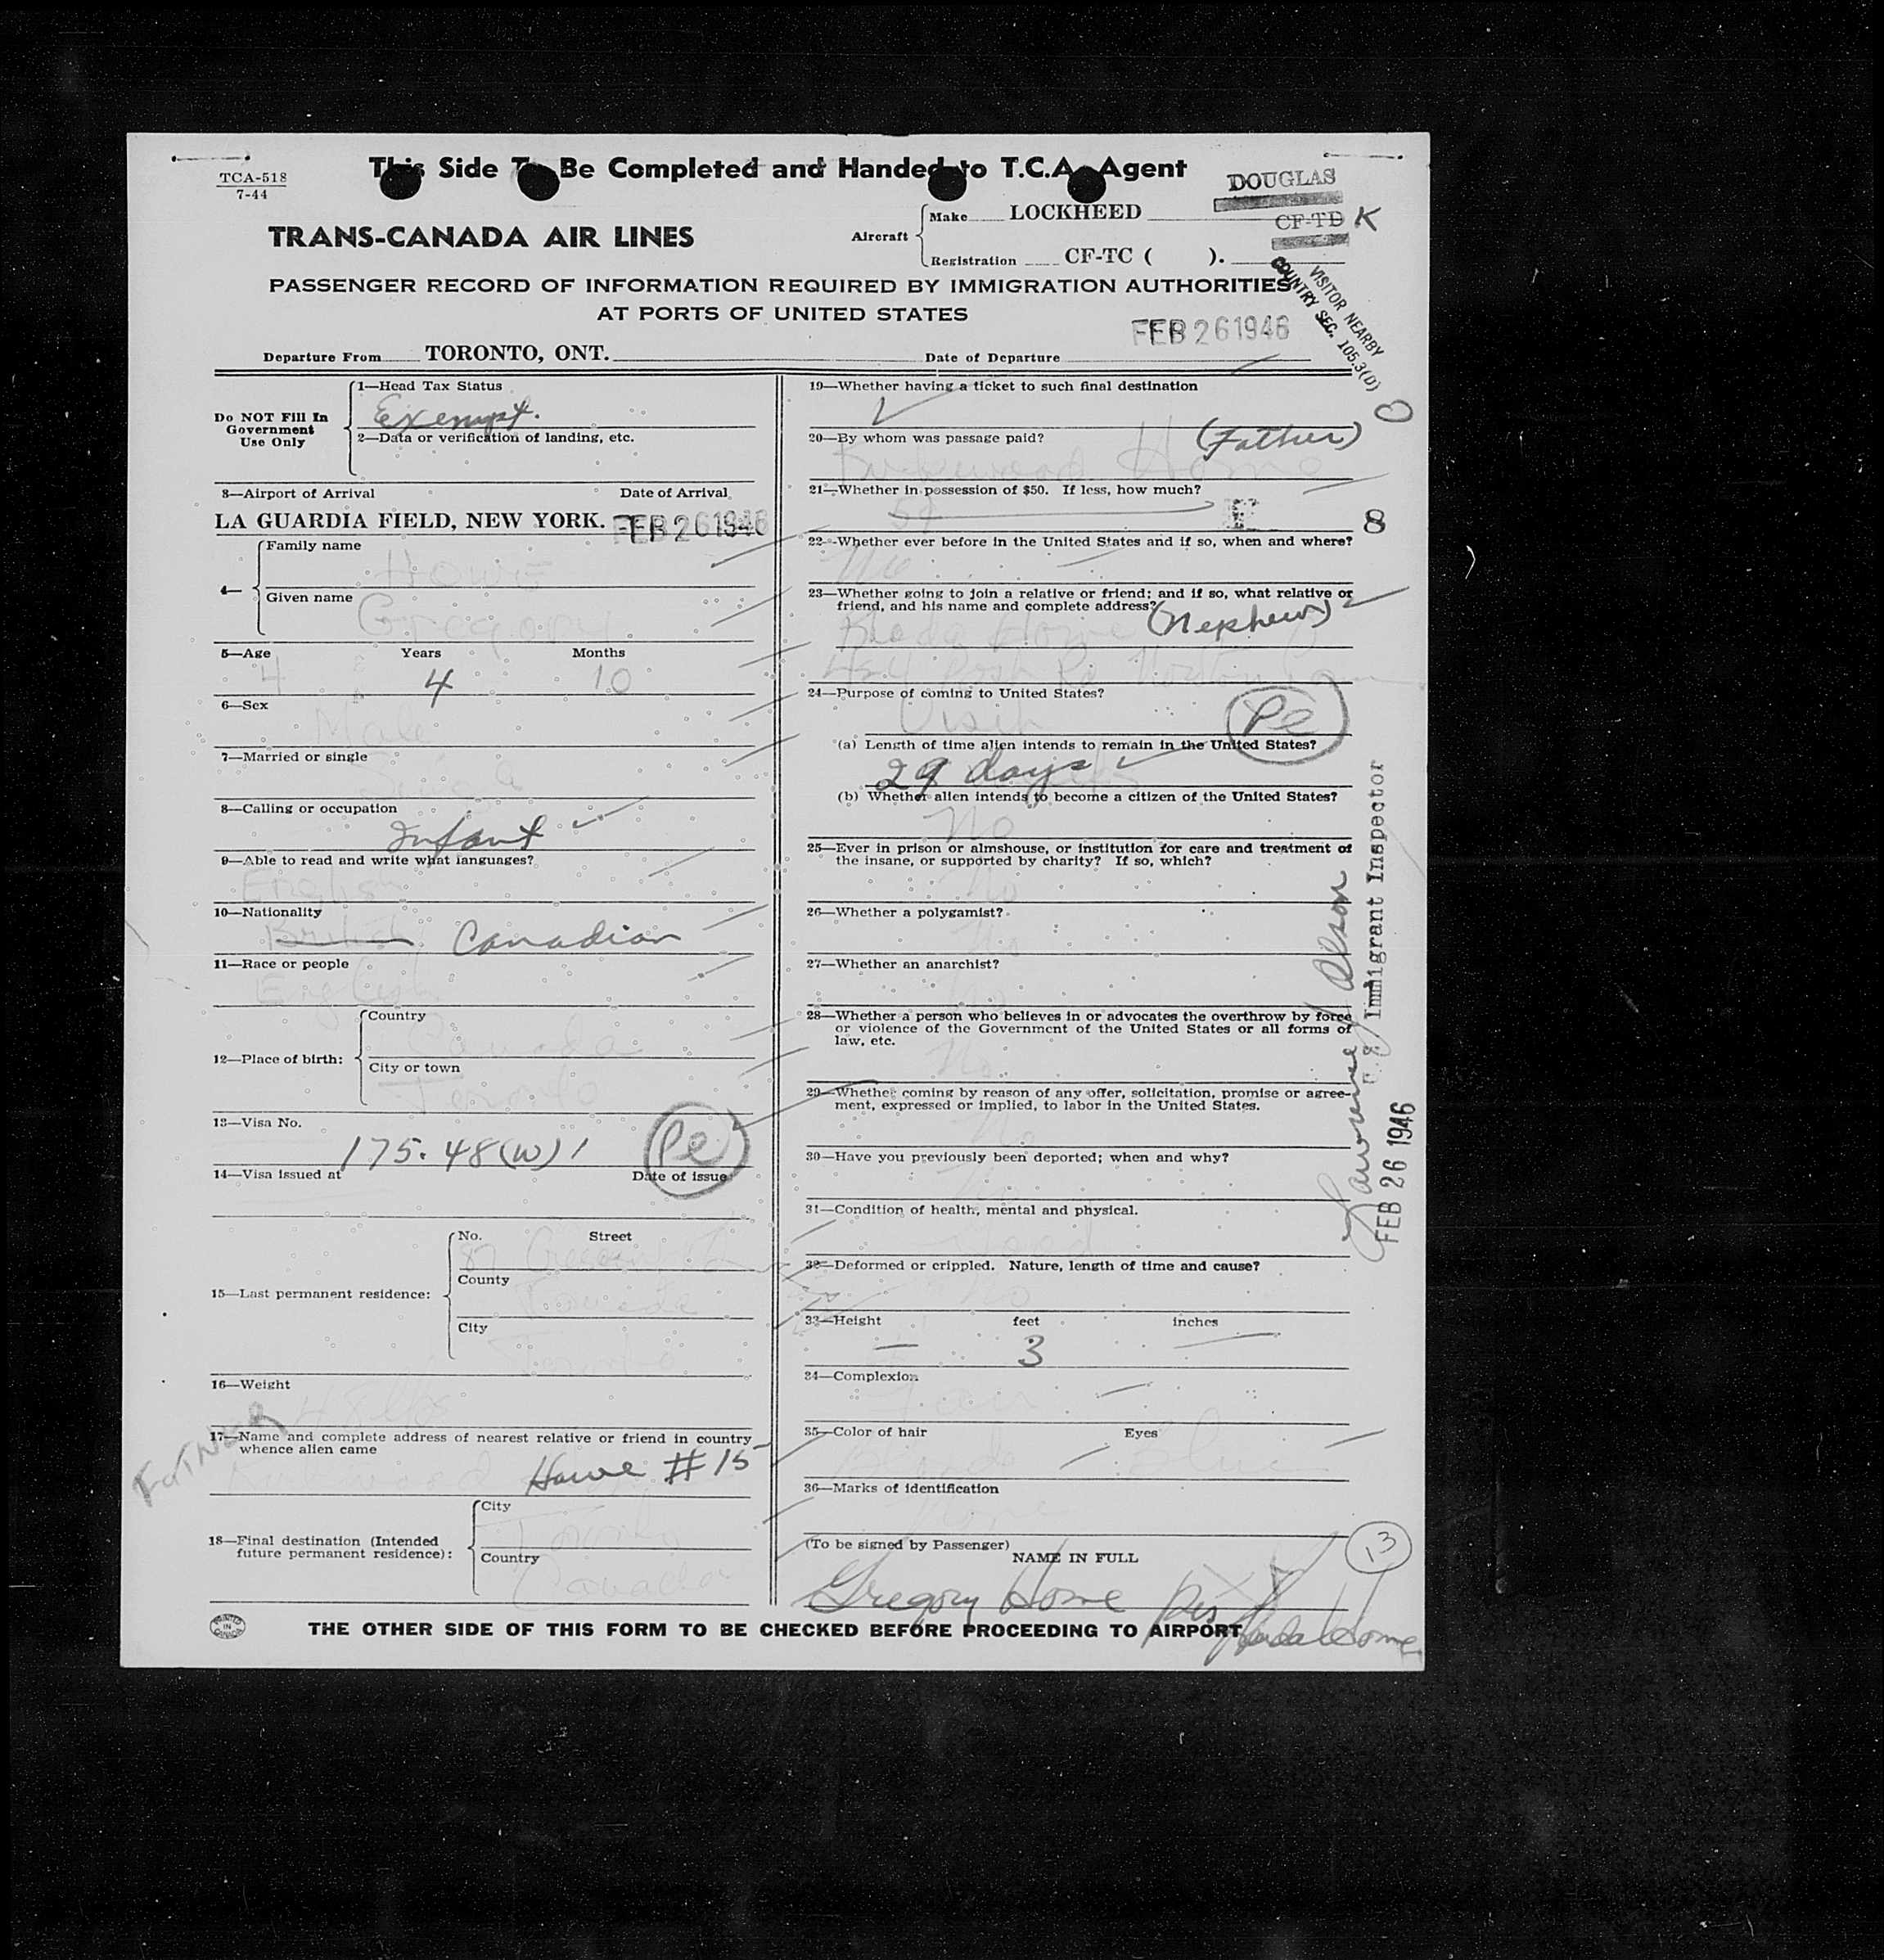 This Side To Be Completed and Handed to T.C.A. Agent
TCA-518
7-44
DOUGLAS
CF-TD K
TRANS-CANADA AIR LINES
Aircraft
Make LOCKHEED
Registration CF-TC ( ).
VISITOR NEARBY
COUNTRY SEC. 105.3(D)
PASSENGER RECORD OF INFORMATION REQUIRED BY IMMIGRATION AUTHORITIES
AT PORTS OF UNITED STATES
FEB 26 1946
Departure From TORONTO, ONT.
Date of Departure
Do NOT Fill In
Government
Use Only
1—Head Tax Status
Exempt.
2—Data or verification of landing, etc.
3—Airport of Arrival Date of Arrival
LA GUARDIA FIELD, NEW YORK. FEB 26 1946
4—
Family name
Given name
Gregory
5—Age Years Months
4 4 10
6—Sex
Male
7—Married or single
Single
8—Calling or occupation
Infant
9—Able to read and write what languages?
English
10—Nationality
British Canadian
11—Race or people
English
12—Place of birth:
Country
Canada
City or town
Toronto
13—Visa No.
175.48(W)1 Pe
14—Visa issued at Date of issue
15—Last permanent residence:
No. Street
87 Crescent
County
City
Toronto
16—Weight
17—Name and complete address of nearest relative or friend in country
whence alien came
FATHER
# 15
18—Final destination (Intended
future permanent residence):
City
Toronto
Country
Canada
19—Whether having a ticket to such final destination
20—By whom was passage paid? (Father)
21—Whether in possession of $50. If less, how much?
8
22—Whether ever before in the United States and if so, when and where?
No
23—Whether going to join a relative or friend; and if so, what relative or
friend, and his name and complete address? (Nephew)
24—Purpose of coming to United States?
Visit Pe
(a) Length of time alien intends to remain in the United States?
29 days
(b) Whether alien intends to become a citizen of the United States?
No
25—Ever in prison or almshouse, or institution for care and treatment of
the insane, or supported by charity? If so, which?
No
26—Whether a polygamist?
No
27—Whether an anarchist?
No
28—Whether a person who believes in or advocates the overthrow by force
or violence of the Government of the United States or all forms of
law, etc.
No
29—Whether coming by reason of any offer, solicitation, promise or agree-
ment, expressed or implied, to labor in the United States.
No
30—Have you previously been deported; when and why?
No
31—Condition of health, mental and physical.
Good
32—Deformed or crippled. Nature, length of time and cause?
No
33—Height feet inches
3
34—Complexion
Fair
35—Color of hair Eyes
Blonde Blue
36—Marks of identification
None
(To be signed by Passenger)
NAME IN FULL
Gregory Home
13
Immigrant Inspector
FEB 26 1946
PRINTED
IN
CANADA
THE OTHER SIDE OF THIS FORM TO BE CHECKED BEFORE PROCEEDING TO AIRPORT